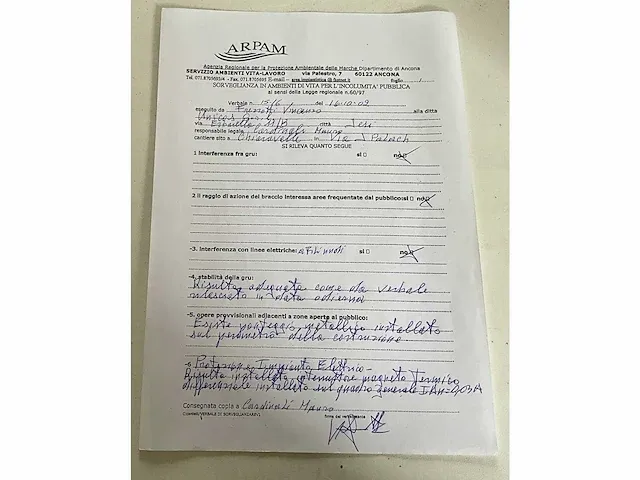 ARPAM
Agenzia Regionale per la Protezione Ambientale delle Marche Dipartimento di Ancona
SERVIZIO AMBIENTI VITA-LAVORO via Palestro, 7 60122 ANCONA
SORVEGLIANZA IN AMBIENTI DI VITA PER L'INCOLUMITA' PUBBLICA
ai sensi della Legge regionale n.60/97
Verbale n. 15/6 del 16.10.02
eseguito da Vincenzo alla ditta
via città Jesi
responsabile legale Cardinali Mauro
cantiere sito a Chiaravalle in Via J Palach
SI RILEVA QUANTO SEGUE
1 interferenza fra gru: si no
2 il raggio di azione del braccio interessa aree frequentate dal pubblico: si no
-3. interferenza con linee elettriche: si no
-4. stabilità della gru:
Risulta adeguata come da verbale
rilasciato in data odierna
-5. opere provvisionali adiacenti a zone aperte al pubblico:
Esiste ponteggio metallico installato
sul perimetro della costruzione
Protezione Impianto Elettrico -
Risulta installato interruttore magneto termico
differenziale installato sul quadro generale IΔn=0,03A
Consegnata copia a Cardinali Mauro
firma del verbalizzante